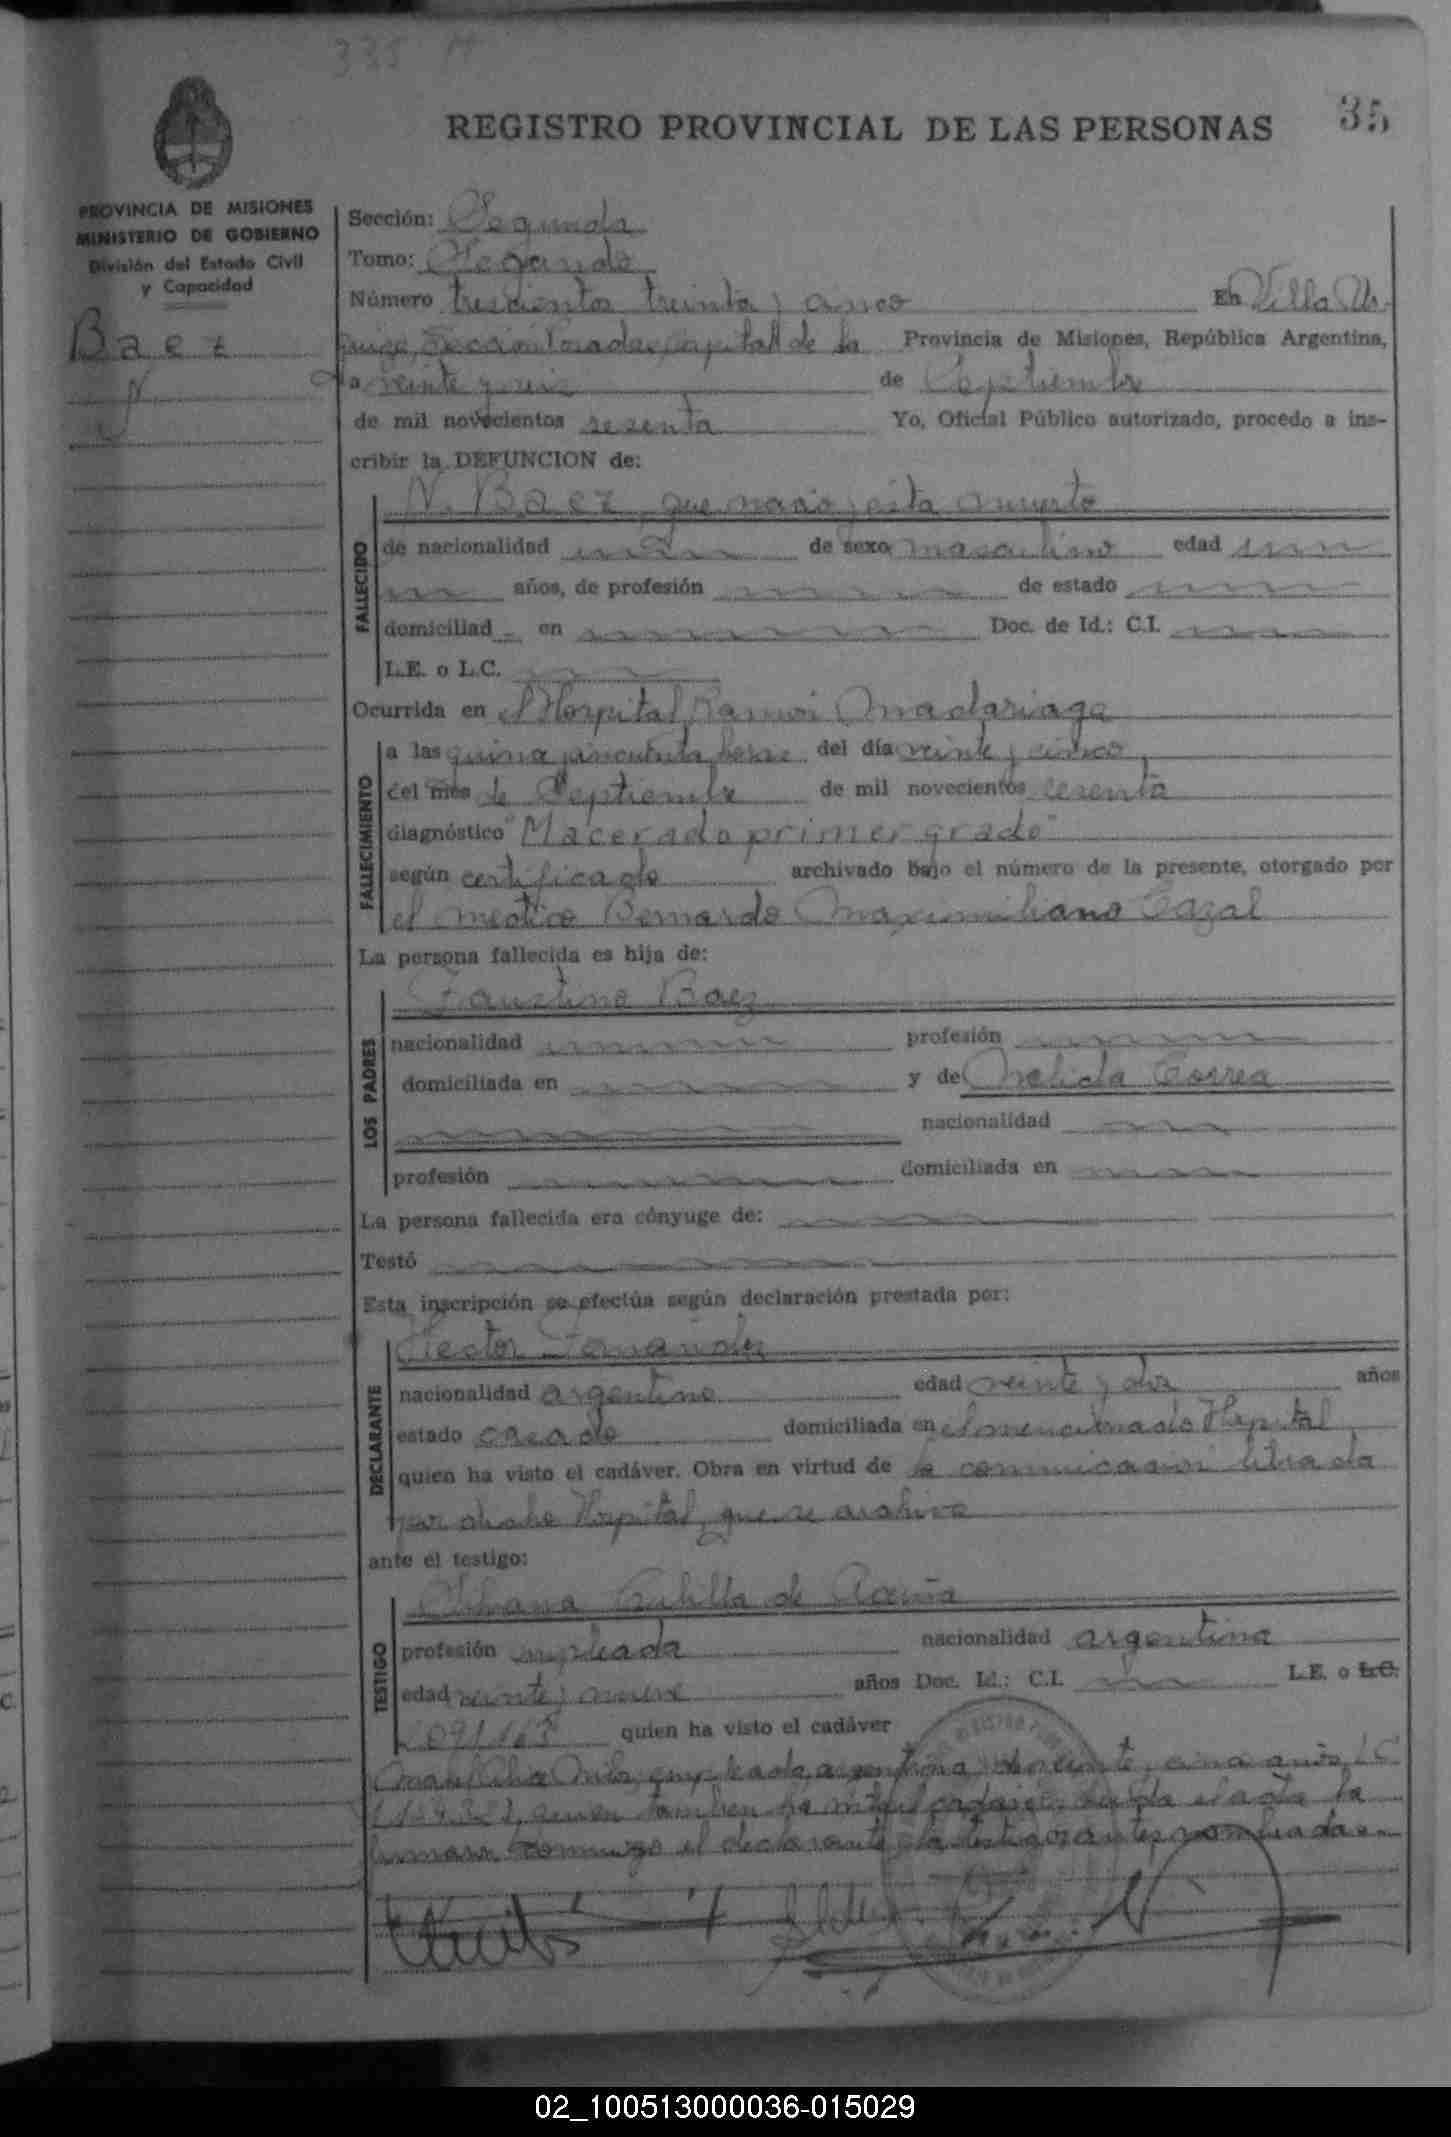 335
35
REGISTRO PROVINCIAL DE LAS PERSONAS
PROVINCIA DE MISIONES
MINISTERIO DE GOBIERNO
División del Estado Civil
y Capacidad
Baez
N.
Sección: Segunda
Tomo: Segundo
Número trescientos treinta y cinco En Villa Ur-
quiza, Sección Posadas, Capital de la Provincia de Misiones, República Argentina,
a veinte y seis de Septiembre
de mil novecientos sesenta Yo, Oficial Público autorizado, procedo a ins-
cribir la DEFUNCION de:
N. Baez, que nacio y esta muerto
FALLECIDO
de nacionalidad de sexo masculino edad
años, de profesión de estado
domiciliad en Doc. de Id.: C.I.
L.E. o L.C.
Ocurrida en el Hospital Ramon Madariaga
FALLECIMIENTO
a las quince cincuenta horas del día veinte y cinco
del mes de Septiembre de mil novecientos sesenta
diagnóstico "Macerado primer grado"
según certificado archivado bajo el número de la presente, otorgado por
el medico Bernardo Maximiliano Cazal
La persona fallecida es hija de:
LOS PADRES
Faustino Baez
nacionalidad profesión
domiciliada en y de Melida Correa
nacionalidad
profesión domiciliada en
La persona fallecida era cónyuge de:
Testó
Esta inscripción se efectúa según declaración prestada por:
DECLARANTE
Hector Fernandez
nacionalidad argentino edad veinte y dos años
estado casado domiciliada en el mencionado Hospital
quien ha visto el cadáver. Obra en virtud de la comunicacion librada
por dicho Hospital, que se archiva
ante el testigo:
TESTIGO
de Acuña
profesión empleada nacionalidad argentina
edad veinte y nueve años Doc. Id.: C.I. L.E. o L.C.
quien ha visto el cadáver
empleada, argentina, de veinte y cinco años, L.C.
quien tambien ha visto el cadaver. Leida el acta la
firmaron conmigo el declarante y la testigo antes nombrada
02_100513000036-015029